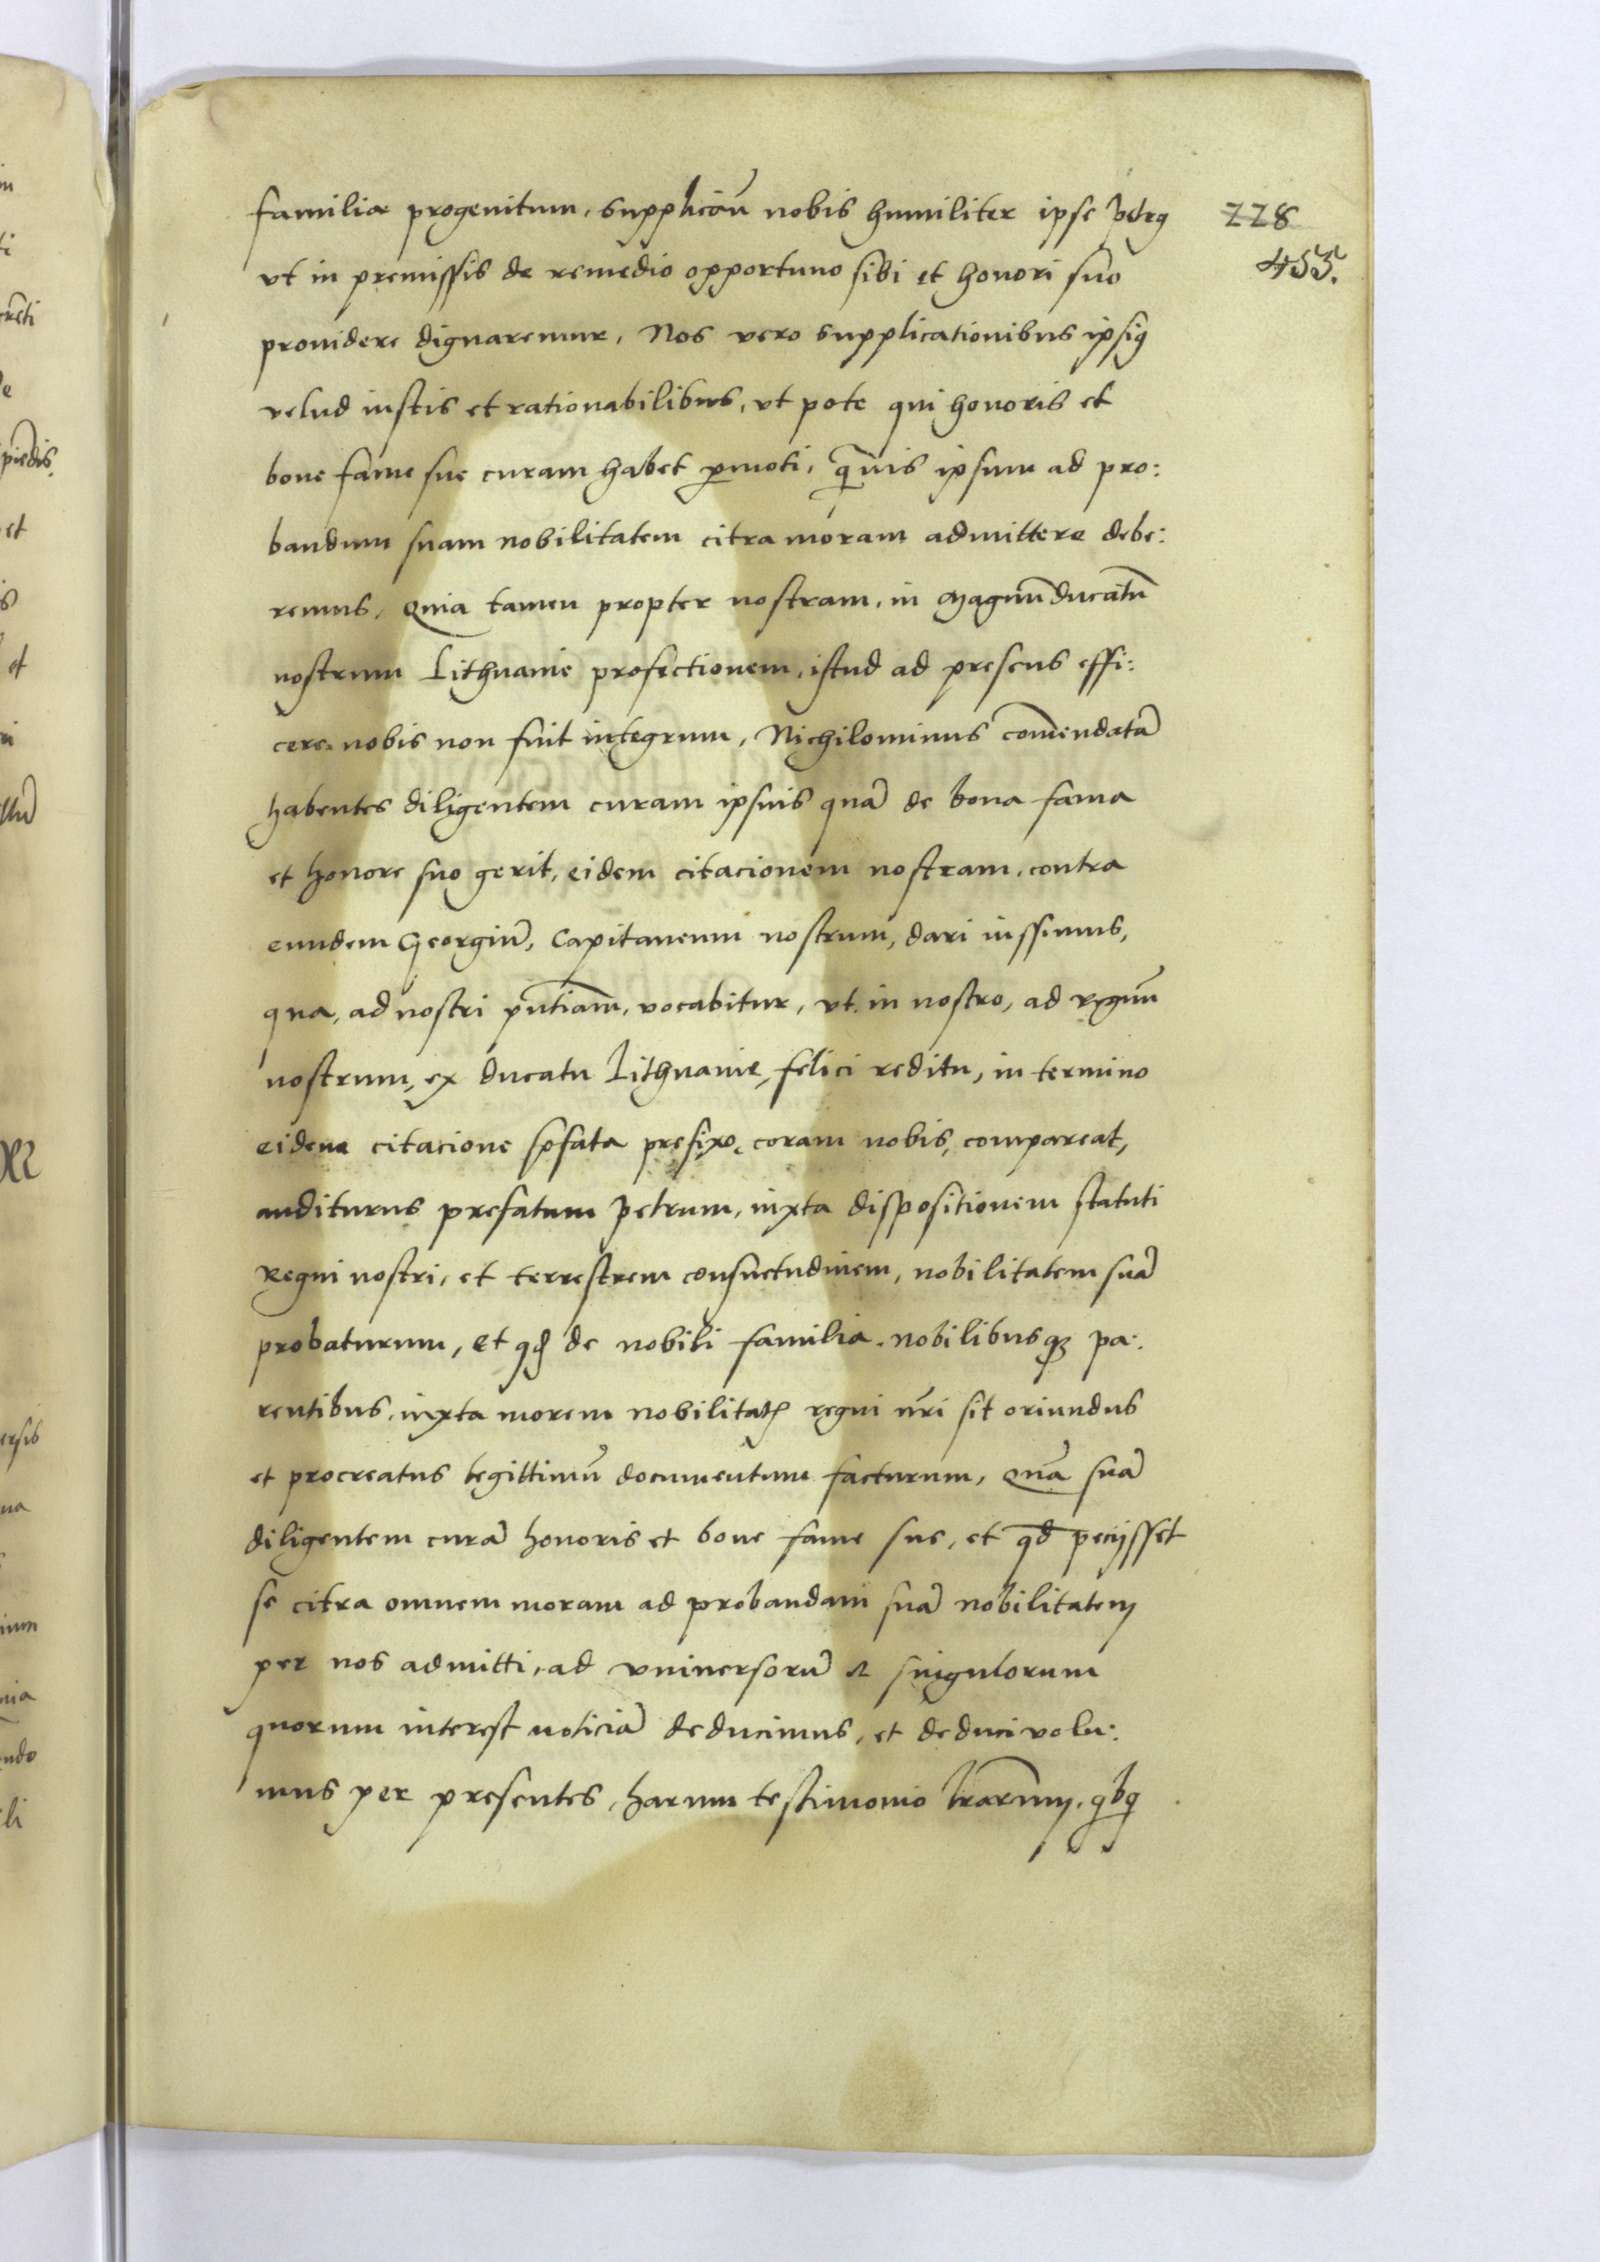 familia progenitum, supplicaũ nobis humiliter ipse Petrꝰ
228
vt in premissis de remedio opportuno sibi et honori suo
455.
prouidere dignaremur, Nos vero supplicationibus ipsiꝰ
velud iustis et rationabilibus, vt pote qui honoris et
bone fame sue curam habet ꝑmoti, q̃uis ipsum ad pro:
bandum suam nobilitatem citra moram admittere debe:
remus, Quia tamen propter nostram, in Magnũ ducatũ
nostrum Lithuanie profectionem, istud ad presens effi:
cere nobis non fuit integrum, Nichilominus com̃endatã
habentes diligentem curam ipsuis quã de bona fama
et honore suo gerit, eidem citacionem nostram, contra
eundem Georgiũ, Capitaneum nostrum, dari iussimus,
qua, ad nostri pñtiam, vocabitur, vt in nostro, ad regnũ
nostrum, ex ducatu Lithuanie, felici reditu, in termino
eidem citacione p̃fata prefixo, coram nobis, compareat,
auditurus prefatum Petrum, iuxta dispositionem statuti
Regni nostri, et terrestrem consuetudinem, nobilitatem suã
probaturum, et qđ de nobili familia, nobilibusqꝫ pa:
rentibus, iuxta morem nobilitatꝭ regni nr̃i sit oriundus
et procreatus legittimũ documentum facturum, Quã suã
diligentem curã honoris et bone fame sue, et qđ peciisset
se citra omnem moram ad probandam suã nobilitatem
per nos admitti, ad vniuersorũ et singulorum
quorum interest noticiã deducimus, et deduci volu:
mus per presentes, harum testimonio lr̃arum, qꝰbꝰ